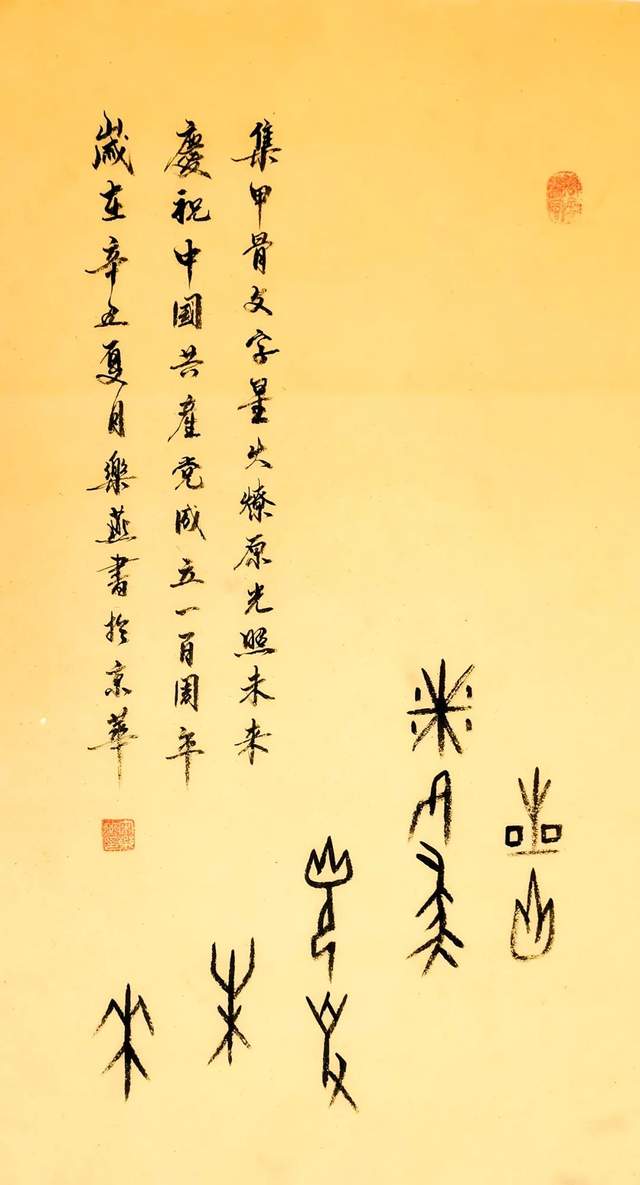 星火
燎原
光照
未
来
集甲骨文字星火燎原光照未来
慶祝中國共產党成立一百周年
歲在辛丑夏月樂燕書於京華